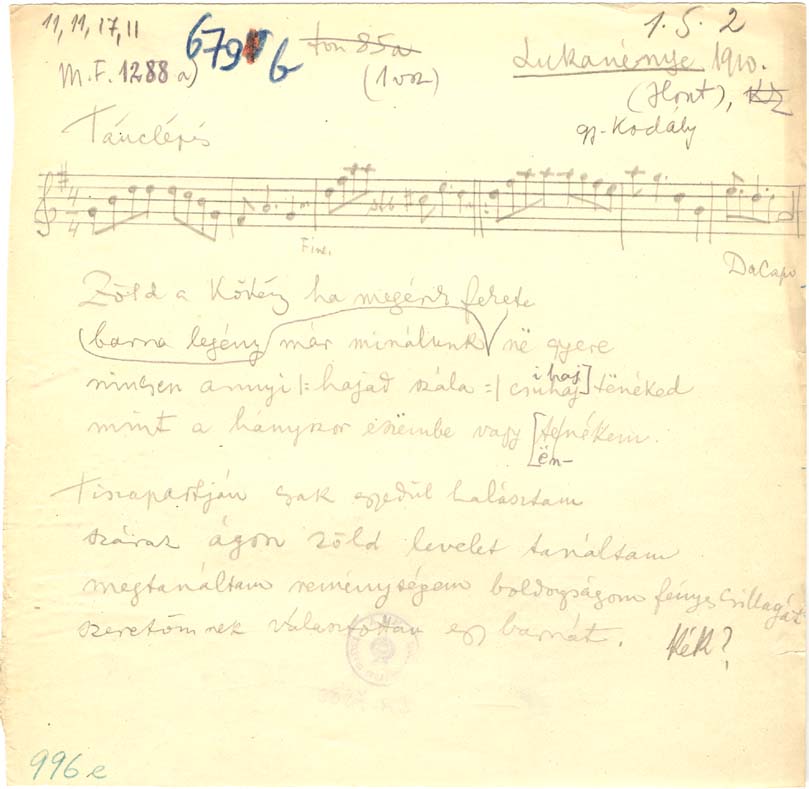 11, 11, 17, 11
679 b
ton 85a
1. 5. 2
M.F. 1288 a)
(1 vsz)
Lukanénye 1910.
(Hont),
gy. Kodály
Tánclépés
4 4
Fine.
Da Capo
Zöld a kökény ha megérik fekete
barna legény már minálunk në gyere
nincsen annyi |: hajad szála :| csuhaj tënéked
ihaj]
mint a hányszor eszëmbe vagy [te nékem.
[ën-
Tiszapartján csak egyedül halásztam
száraz ágon zöld levelet tanáltam
megtanáltam reménységem boldogságom fényes csillagát
szeretőmnek választottam egy barnát.
kék?
996 e